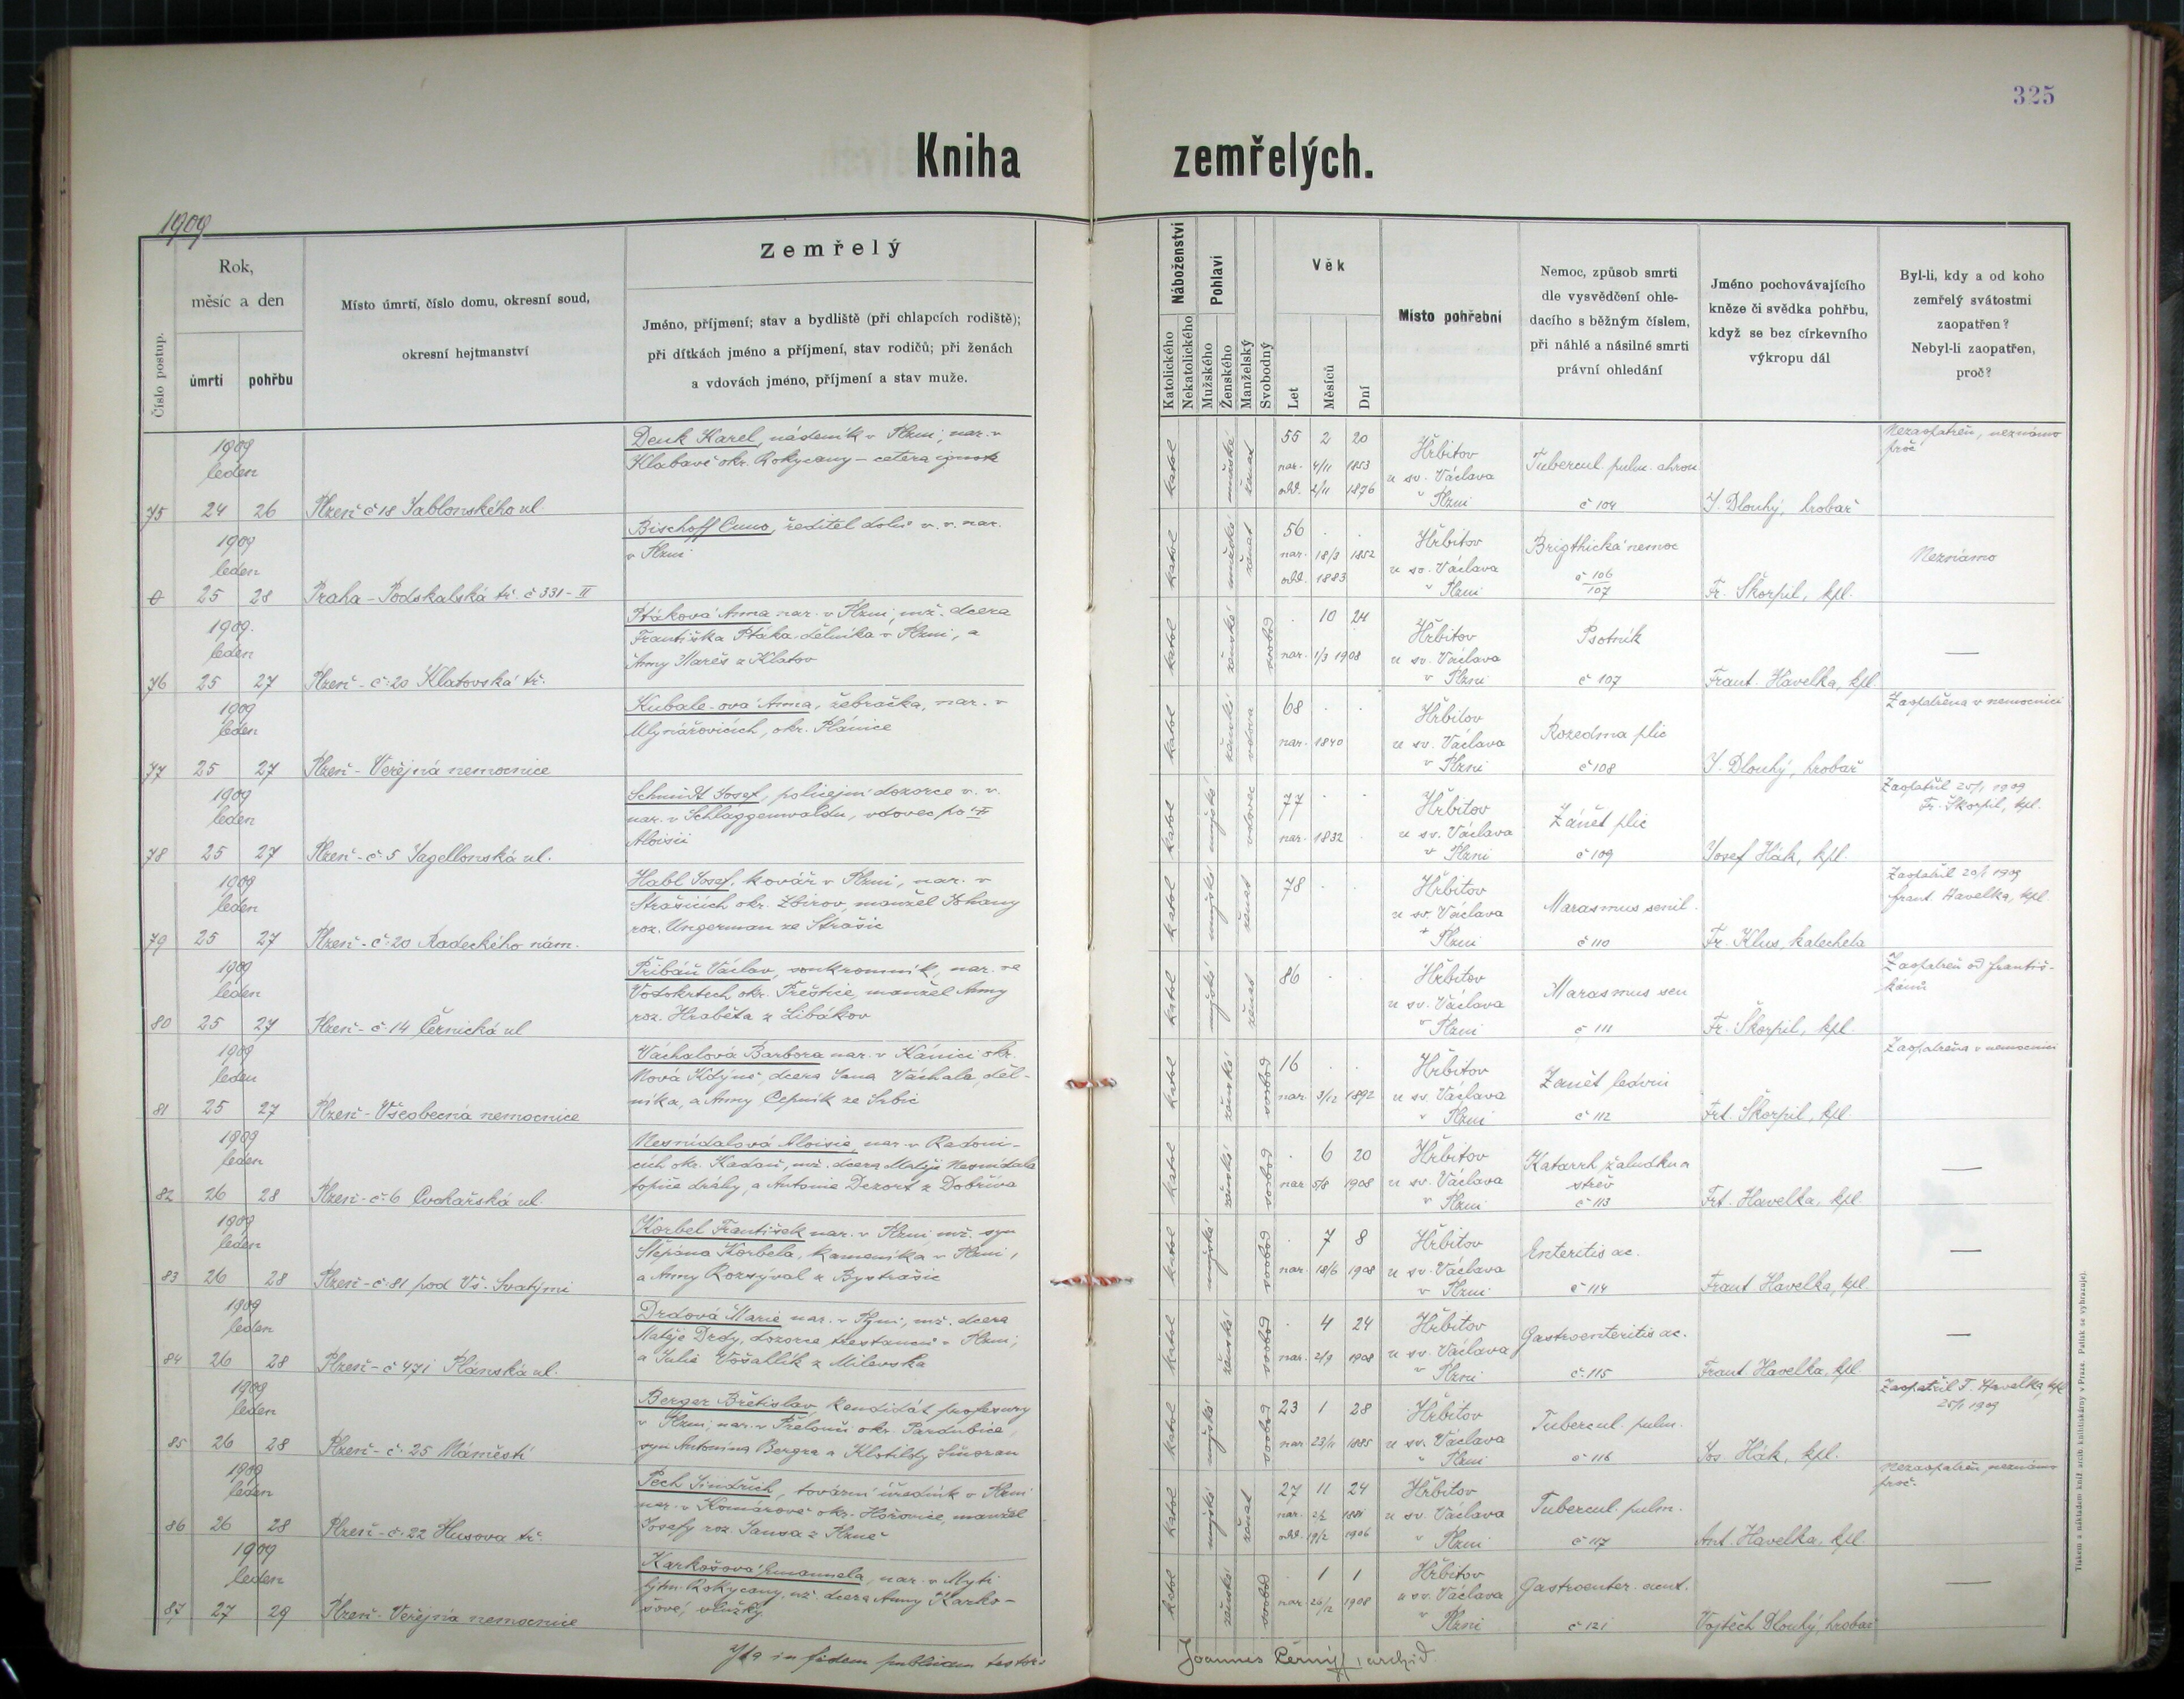 325
Kniha zemřelých.
1909
Číslo postup.
Rok,
měsíc a den
úmrtí
pohřbu
Místo úmrtí, číslo domu, okresní soud,
okresní hejtmanství
Zemřelý
Jméno, příjmení; stav a bydliště (při chlapcích rodiště);
při dítkách jméno a příjmení, stav rodičů; při ženách
a vdovách jméno, příjmení a stav muže.
Náboženství
Katolického
Nekatolického
Pohlaví
Mužského
Ženského
Manželský
Svobodný
Věk
Let
Měsíců
Dní
Místo pohřební
Nemoc, způsob smrti
dle vysvědčení ohle-
dacího s běžným číslem,
při náhlé a násilné smrti
právní ohledání
Jméno pochovávajícího
kněze či svědka pohřbu,
když se bez církevního
výkropu dál
Byl-li, kdy a od koho
zemřelý svátostmi
zaopatřen?
Nebyl-li zaopatřen,
proč?
1909
leden
75 24 26 Plzeň č 18 Jablonského ul.
Denk Karel, nádeník v Plzni, nar. v
Klabavě okr. Rokycany – cetera
katol mužské ženat
55 2 20
nar. 4/11 1853
odd. 2/11 1876
Hřbitov
u sv. Václava
v Plzni
Tubercul. pulm. chron
č 104
J. Dlouhý, hrobař
Nezaopatřen, neznámo
proč
1909
leden
0 25 28 Praha – Podskalská tř. č 331 – II
Bischoff Cuno, ředitel dolů v. v. nar.
v Plzni
katol mužské ženat
56
nar. 18/3 1852
odd. 1883
Hřbitov
u sv. Václava
v Plzni
Brigthická nemoc
č 106
107
Fr. Škorpil, kpl.
Neznámo
1909.
leden
76 25 27 Plzeň – č. 20 Klatovská tř.
Ptáková Anna nar. v Plzni, mž. dcera
Františka Ptáka dělníka v Plzni, a
Anny Mareš z Klatov
katol ženské svobod
10 24
nar. 1/3 1908
Hřbitov
u sv. Václava
v Plzni
Psotník
č 107
Frant. Havelka, kpl
—
1909
leden
77 25 27 Plzeň – Veřejná nemocnice
Kubale-ová Anna, žebračka, nar. v
Mlynářovicích, okr. Plánice
katol ženské vdova
68
nar. 1840
Hřbitov
u sv. Václava
v Plzni
Rozedma plic
č 108
J. Dlouhý, hrobař
Zaopatřena v nemocnici
1909
leden
78 25 27 Plzeň – č. 5 Jagellonská ul.
Schmidt Josef, policejní dozorce v. v.
nar. v Schlaggenwaldu, vdovec po
Aloisii
katol mužské vdovec
77
nar. 1832
Hřbitov
u sv. Václava
v Plzni
Zánět plic
č 109
Josef Hák, kpl.
Zaopatřil 25/1 1909
Fr. Škorpil, kpl.
1909
leden
79 25 27 Plzeň – č. 20 Radeckého nám.
Habl Josef, kovář v Plzni, nar. v
Strašicích okr. Zbirov, manžel Johany
roz. Ungerman ze Strašic
katol mužské ženat
78
Hřbitov
u sv. Václava
v Plzni
Marasmus senil.
č 110
Fr. Klus, katecheta
Zaopatřil 20/1 1909
Frant. Havelka, kpl
1909
leden
80 25 27 Plzeň – č. 14 Černická ul
Přibáň Václav, soukromník, nar. ve
Vodokrtech okr. Přeštice, manžel Anny
roz. Hraběta z Libákov
katol mužské ženat
86
Hřbitov
u sv. Václava
v Plzni
Marasmus sen
č 111
Fr. Škorpil, kpl.
Zaopatřen od františ-
kánů
1909
leden
81 25 27 Plzeň – Všeobecná nemocnice
Váchalová Barbora nar. v Kánici okr.
Nová Kdýně, dcera Jana Váchala, děl-
níka, a Anny Cepník ze Srbic
katol ženské svobod
16
nar. 3/12 1892
Hřbitov
u sv. Václava
v Plzni
Zánět ledvin
č 112
Frt. Škorpil, kpl.
Zaopatřena v nemocnici
1909
leden
82 26 28 Plzeň – č. 6 Cvokařská ul.
Nesnídalová Aloisie, nar. v Radoni-
cích okr. Kadaň, mž. dcera Matěje Nesnídala
topiče dráhy, a Antonie Dezort z Dobříva
katol ženské svobod
6 20
nar 5/8 1908
Hřbitov
u sv. Václava
v Plzni
Katarrh žaludku a
střev
č 113
Frt. Havelka, kpl
—
1909
leden
83 26 28 Plzeň – č 81 pod Vš. Svatými
Korbel František nar. v Plzni mž. syn
Štěpána Korbela, kameníka v Plzni,
a Anny Rozsýval z Bystrašic
katol mužské svobod
7 8
nar. 18/6 1908
Hřbitov
u sv. Václava
v Plzni
Enteritis ac.
č 114
Frant. Havelka, kpl.
—
1909
leden
84 26 28 Plzeň – č 471 Plánská ul.
Drdová Marie nar. v Plzni, mž. dcera
Matěje Drdy, dozorce trestanců v Plzni,
a Julie Vošahlík z Milevska
katol ženské svobod
4 24
nar. 2/9 1908
Hřbitov
u sv. Václava
v Plzni
Gastroenteritis ac.
č. 115
Frant Havelka, kpl
—
1909
leden
85 26 28 Plzeň – č. 25 Náměstí
Berger Břetislav kandidát profesury
v Plzni, nar. v Přelouči okr. Pardubice,
syn Antonína Bergra a Klotildy
katol mužské svobod
23 1 28
nar 23/11 1885
Hřbitov
u sv. Václava
v Plzni
Tubercul. pulm.
č 116
Jos. Hák, kpl.
Zaopatřil F. Havelka, kpl
25/1 1909
1909
leden
86 26 28 Plzeň – č. 22 Husova tř.
Pech Jindřich, tovární úředník v Plzni
nar. v Komárově okr. Hořovice, manžel
Josefy roz. Jansa z Plzně
katol mužské ženat
27 11 24
nar. 2/2 1881
odd. 19/2 1906
Hřbitov
u sv. Václava
v Plzni
Tubercul. pulm.
č 117
Ant. Havelka, kpl.
Nezaopatřen, neznámo
proč.
1909
leden
87 27 29 Plzeň – Veřejná nemocnice
Karkošová Emanuela, nar. v Mýti
hjtm. Rokycany, nž. dcera Anny Karko-
šové, služky
katol ženské svobod
1 1
nar. 26/12 1908
Hřbitov
u sv. Václava
v Plzni
Gastroenter. acut.
č 121
Vojtěch Dlouhý, hrobař
—
Ita in fidem publicam testor:
Joannes Černý, archid.
Tiskem a nákladem kníž. arcib. knihtiskárny v Praze. Patisk se vyhrazuje).